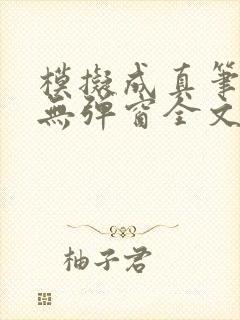 模擬成真筆
無彈窗全文
柚子君